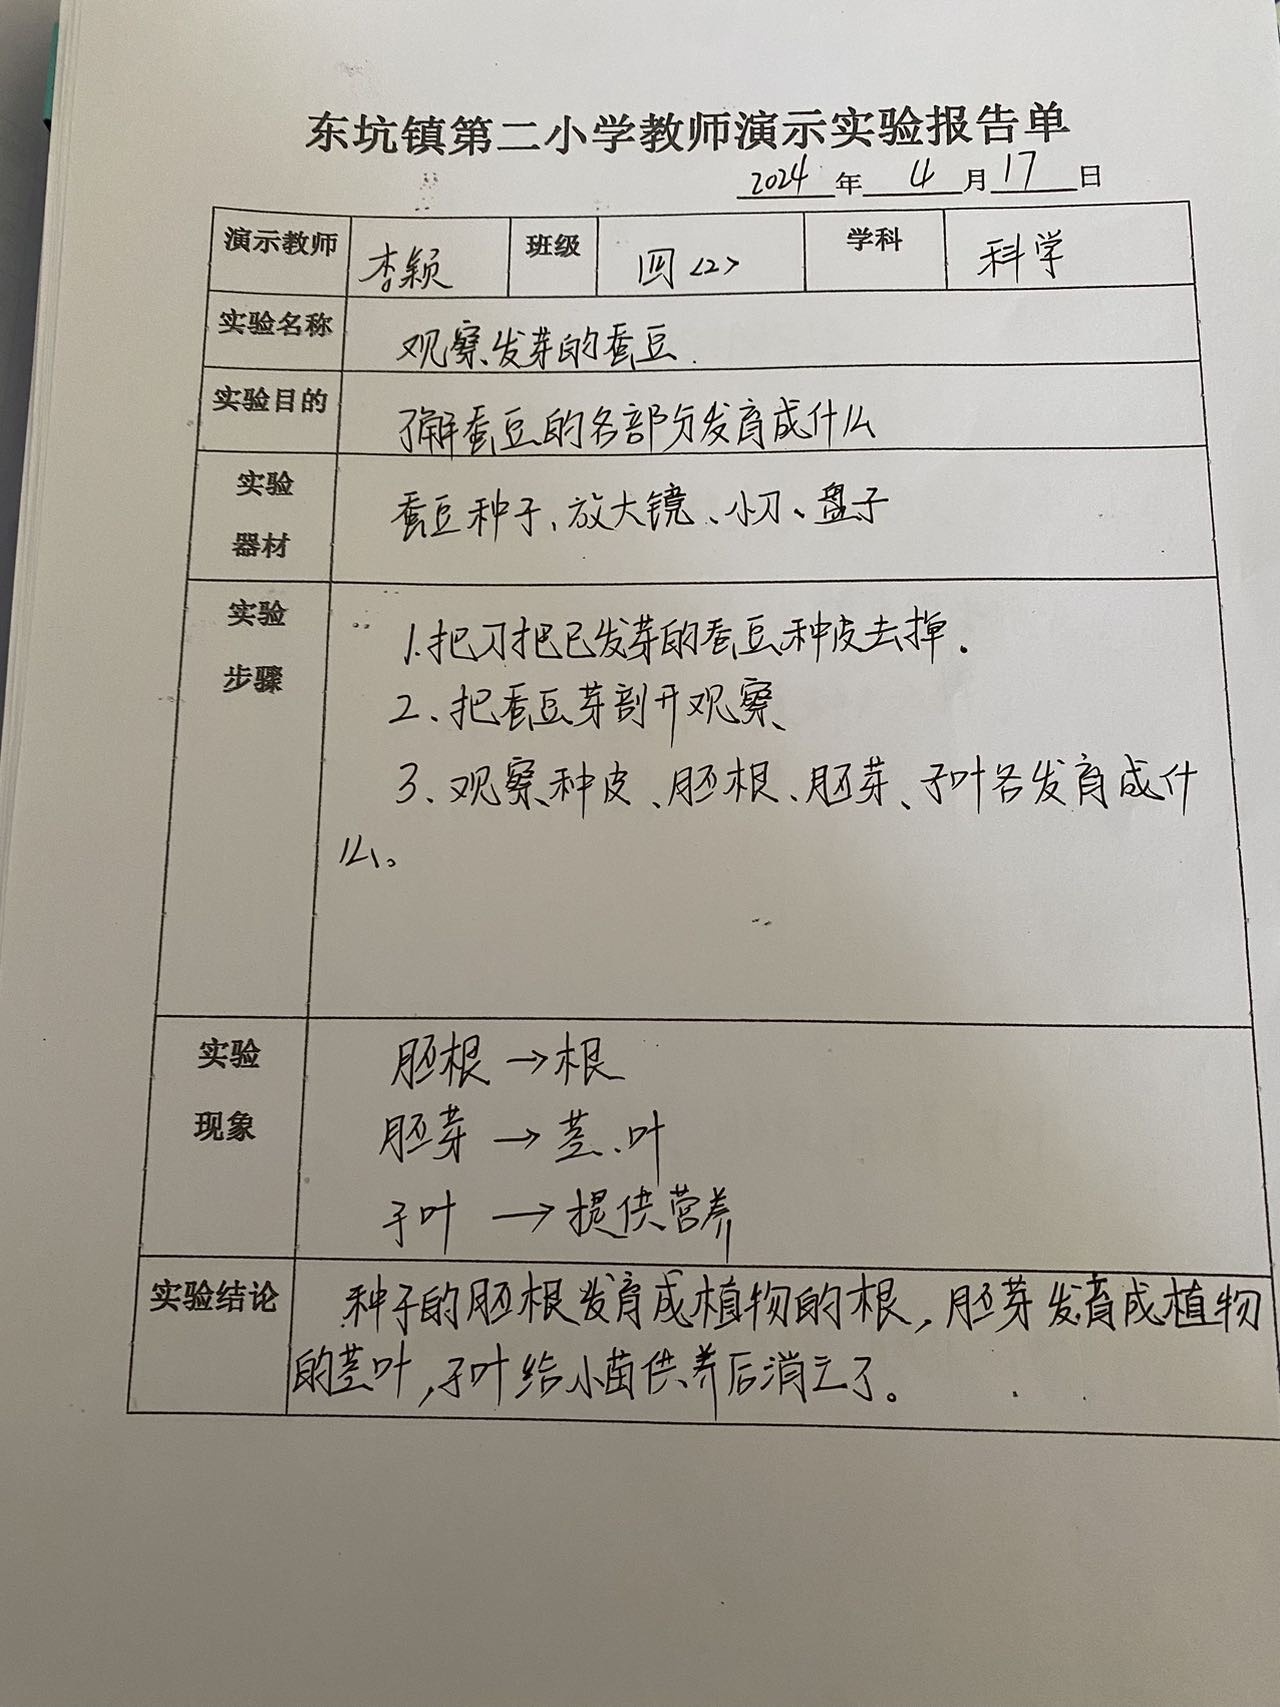 东坑镇第二小学教师演示实验报告单
2024 年 4 月 17 日
演示教师 李颖 班级 四<2> 学科 科学
实验名称 观察发芽的蚕豆.
实验目的 了解蚕豆的各部分发育成什么
实验器材 蚕豆种子、放大镜、小刀、盘子
实验步骤
1.把刀把已发芽的蚕豆种皮去掉.
2、把蚕豆芽剖开观察
3、观察种皮、胚根、胚芽、子叶各发育成什
么。
实验现象
胚根→根
胚芽→茎、叶
子叶→提供营养
实验结论 种子的胚根发育成植物的根,胚芽发育成植物
的茎叶,子叶给小苗供养后消立了。